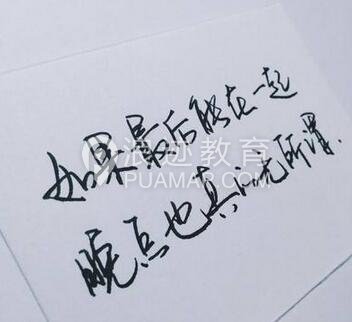 如果最后能在一起
浪迹教育
PUAMAP.COM
晚点也真无所谓.